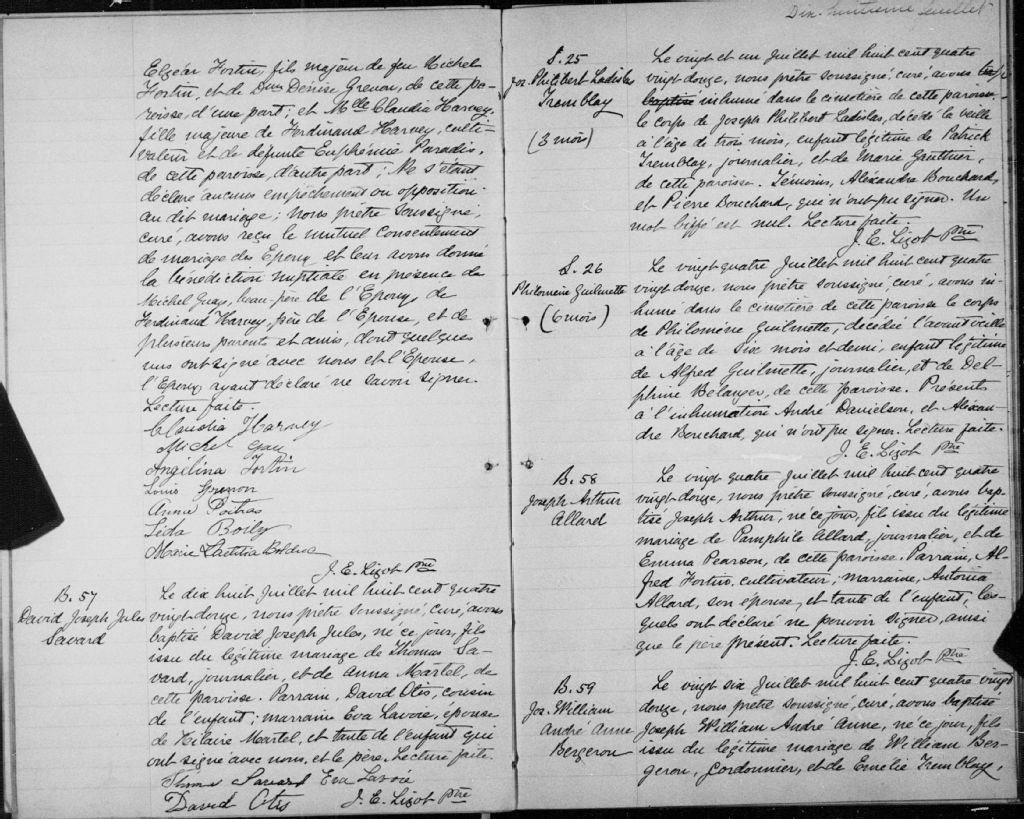 Elzéar Fortin, fils majeur de feu Michel
Fortin, et de Dme Denise Grenon, de cette pa-
roisse, d'une part; et Mlle Claudia Harvey,
fille majeure de Ferdinand Harvey, culti-
vateur et de défunte Euphémie Paradis,
de cette paroisse, d'autre part; Ne s'étant
déclaré aucun empêchement ou opposition
au dit mariage; nous prêtre soussigné,
curé, avons reçu le mutuel consentement
de mariage des Epoux, et leur avons donné
la bénédiction nuptiale en présence de
Michel Guay, beau-père de l'Epoux, de
Ferdinand Harvey, père de l'Epouse, et de
plusieurs parents et amis, dont quelques
uns ont signé avec nous et l'Epouse,
l'Epoux, ayant déclaré ne savoir signer.
Lecture faite.
Claudia Harvey
Michel Gau
Angélina Fortin
Louis Grenon
Anna Poitras
Lida Boily
Marie Laetitia Bolduc
J. E. Lizot Ptre
B. 57
David Joseph Jules
Savard
Le dix huit Juillet mil huit cent quatre
vingt-douze, nous prêtre soussigné, curé, avons
baptisé David Joseph Jules, né ce jour, fils
issu du légitime mariage de Thomas Sa-
vard, journalier, et de Anna Martel, de
cette paroisse. Parrain, David Otis, cousin
de l'enfant; marraine Eva Lavoie, épouse
de Hilaire Martel, et tante de l'enfant qui
ont signé avec nous, et le père. Lecture faite.
Thomas Savard Eva Lavoie
David Otis J. E. Lizot Ptre
Dix-huitième feuillet
S. 25
Jos. Philibert Ladislas
Tremblay
(3 mois)
Le vingt et un Juillet mil huit cent quatre
vingt douze, nous prêtre soussigné, curé, avons
baptisé inhumé dans le cimetière de cette paroisse
le corps de Joseph Philibert Ladislas, décédé la veille
à l'âge de trois mois, enfant légitime de Patrick
Tremblay, journalier, et de Marie Gauthier,
de cette paroisse. Témoins, Alexandre Bouchard,
et Pierre Bouchard, qui n'ont pu signer. Un
mot biffé est nul. Lecture faite.
J. E. Lizot Ptre
S. 26
Philomène Guilmette
(6 mois)
Le vingt quatre Juillet mil huit cent quatre
vingt douze, nous prêtre soussigné, curé, avons in-
humé dans le cimetière de cette paroisse le corps
de Philomène Guilmette, décédée l'avant veille
à l'âge de six mois et demi, enfant légitime
de Alfred Guilmette, journalier, et de Del-
phine Belanger, de cette paroisse. Présents
à l'inhumation André Danielson, et Alexan-
dre Bouchard, qui n'ont pu signer. Lecture faite.
J. E. Lizot Ptre
B. 58
Joseph Arthur
Allard
Le vingt quatre Juillet mil huit cent quatre
vingt-douze, nous prêtre soussigné, curé, avons bap-
tisé Joseph Arthur, né ce jour, fils issu du légitime
mariage de Pamphile Allard, journalier, et de
Emma Pearson, de cette paroisse. Parrain, Al-
fred Fortin, cultivateur; marraine, Antonia
Allard, son épouse, et tante de l'enfant, les-
quels ont déclaré ne pouvoir signer, ainsi
que le père présent. Lecture faite.
J. E. Lizot Ptre
B. 59
Jos. William
André Anne
Bergeron
Le vingt six Juillet mil huit cent quatre vingt
douze, nous prêtre soussigné, curé, avons baptisé
Joseph William André Anne, né ce jour, fils
issu du légitime mariage de William Ber-
geron, cordonnier, et de Emélie Tremblay,